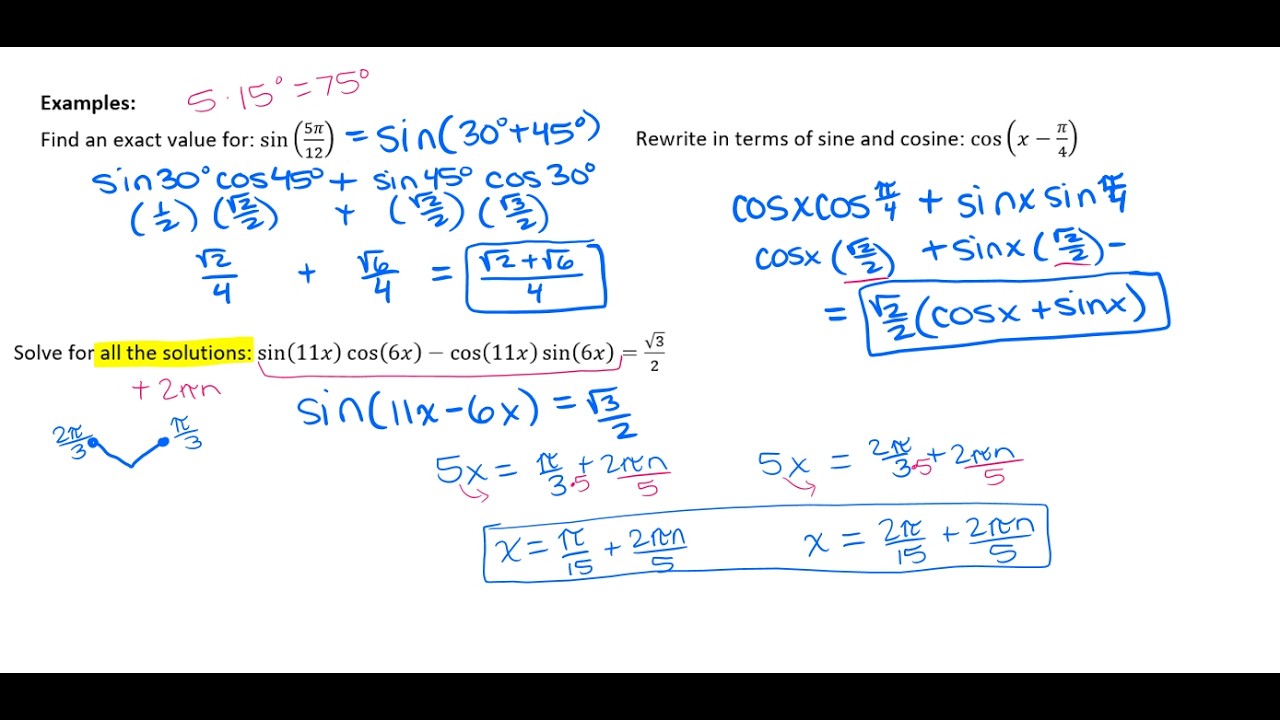 Examples: 5·15°=75°
Find an exact value for: sin (5π/12) = sin(30°+45°)
sin30°cos45° + sin45° cos30°
(1/2) (√2/2) + (√2/2) (√3/2)
√2/4 + √6/4 = √2+√6/4
Rewrite in terms of sine and cosine: cos (x − π/4)
cosxcos π/4 + sinx sin π/4
cosx (√2/2) + sinx (√2/2) -
= √2/2 (cosx + sinx)
Solve for all the solutions: sin(11x) cos(6x) − cos(11x) sin(6x) = √3/2
+ 2πn
sin(11x-6x) = √3/2
2π/3 π/3
5x = π/3·5 + 2πn/5
5x = 2π/3·5 + 2πn/5
x = π/15 + 2πn/5
x = 2π/15 + 2πn/5